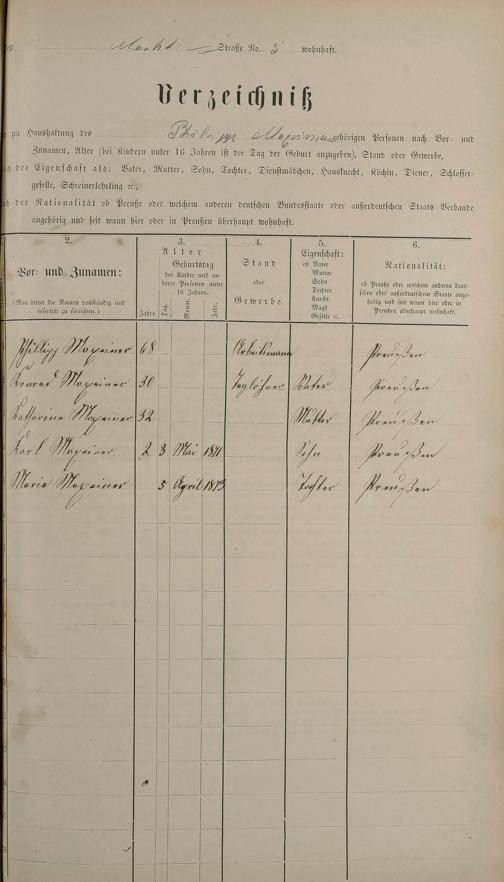 Markt Straße No. 5 wohnhaft.
Verzeichniß
zur Haushaltung des Philipp Maxeiner gehörigen Personen nach Vor- und
Zunamen, Alter (bei Kindern unter 16 Jahren ist der Tag der Geburt anzugeben), Stand oder Gewerbe,
der Eigenschaft als: Vater, Mutter, Sohn, Tochter, Dienstmädchen, Hausknecht, Köchin, Diener, Schlosser-
geselle, Schreinerlehrling ꝛc.
der Nationalität ob Preuße oder welchem anderen deutschen Bundesstaate oder außerdeutschen Staats-Verbande
angehörig und seit wann hier oder in Preußen überhaupt wohnhaft.
2. 3. 4. 5. 6.
Vor- und Zunamen:
(Man bittet die Namen vollständig und
leserlich zu schreiben.)
Alter
Geburtstag
der Kinder und an-
derer Personen unter
16 Jahren.
Jahre. Tag. Monat. Jahr.
Stand
oder
Gewerbe.
Eigenschaft:
ob Vater
Mutter
Sohn
Tochter
Knecht
Magd
Geselle ꝛc.
Nationalität:
ob Preuße oder welchem anderen deut-
schen oder außerdeutschen Staate ange-
hörig und seit wann hier oder in
Preußen überhaupt wohnhaft.
Philipp Maxeiner 68 Preußen
Konrad Maxeiner 30 Taglöhner Vater Preußen
Katharina Maxeiner 32 Mutter Preußen
Karl Maxeiner 2 3 Mai 1871 Sohn Preußen
Maria Maxeiner 5 April 1873 Tochter Preußen